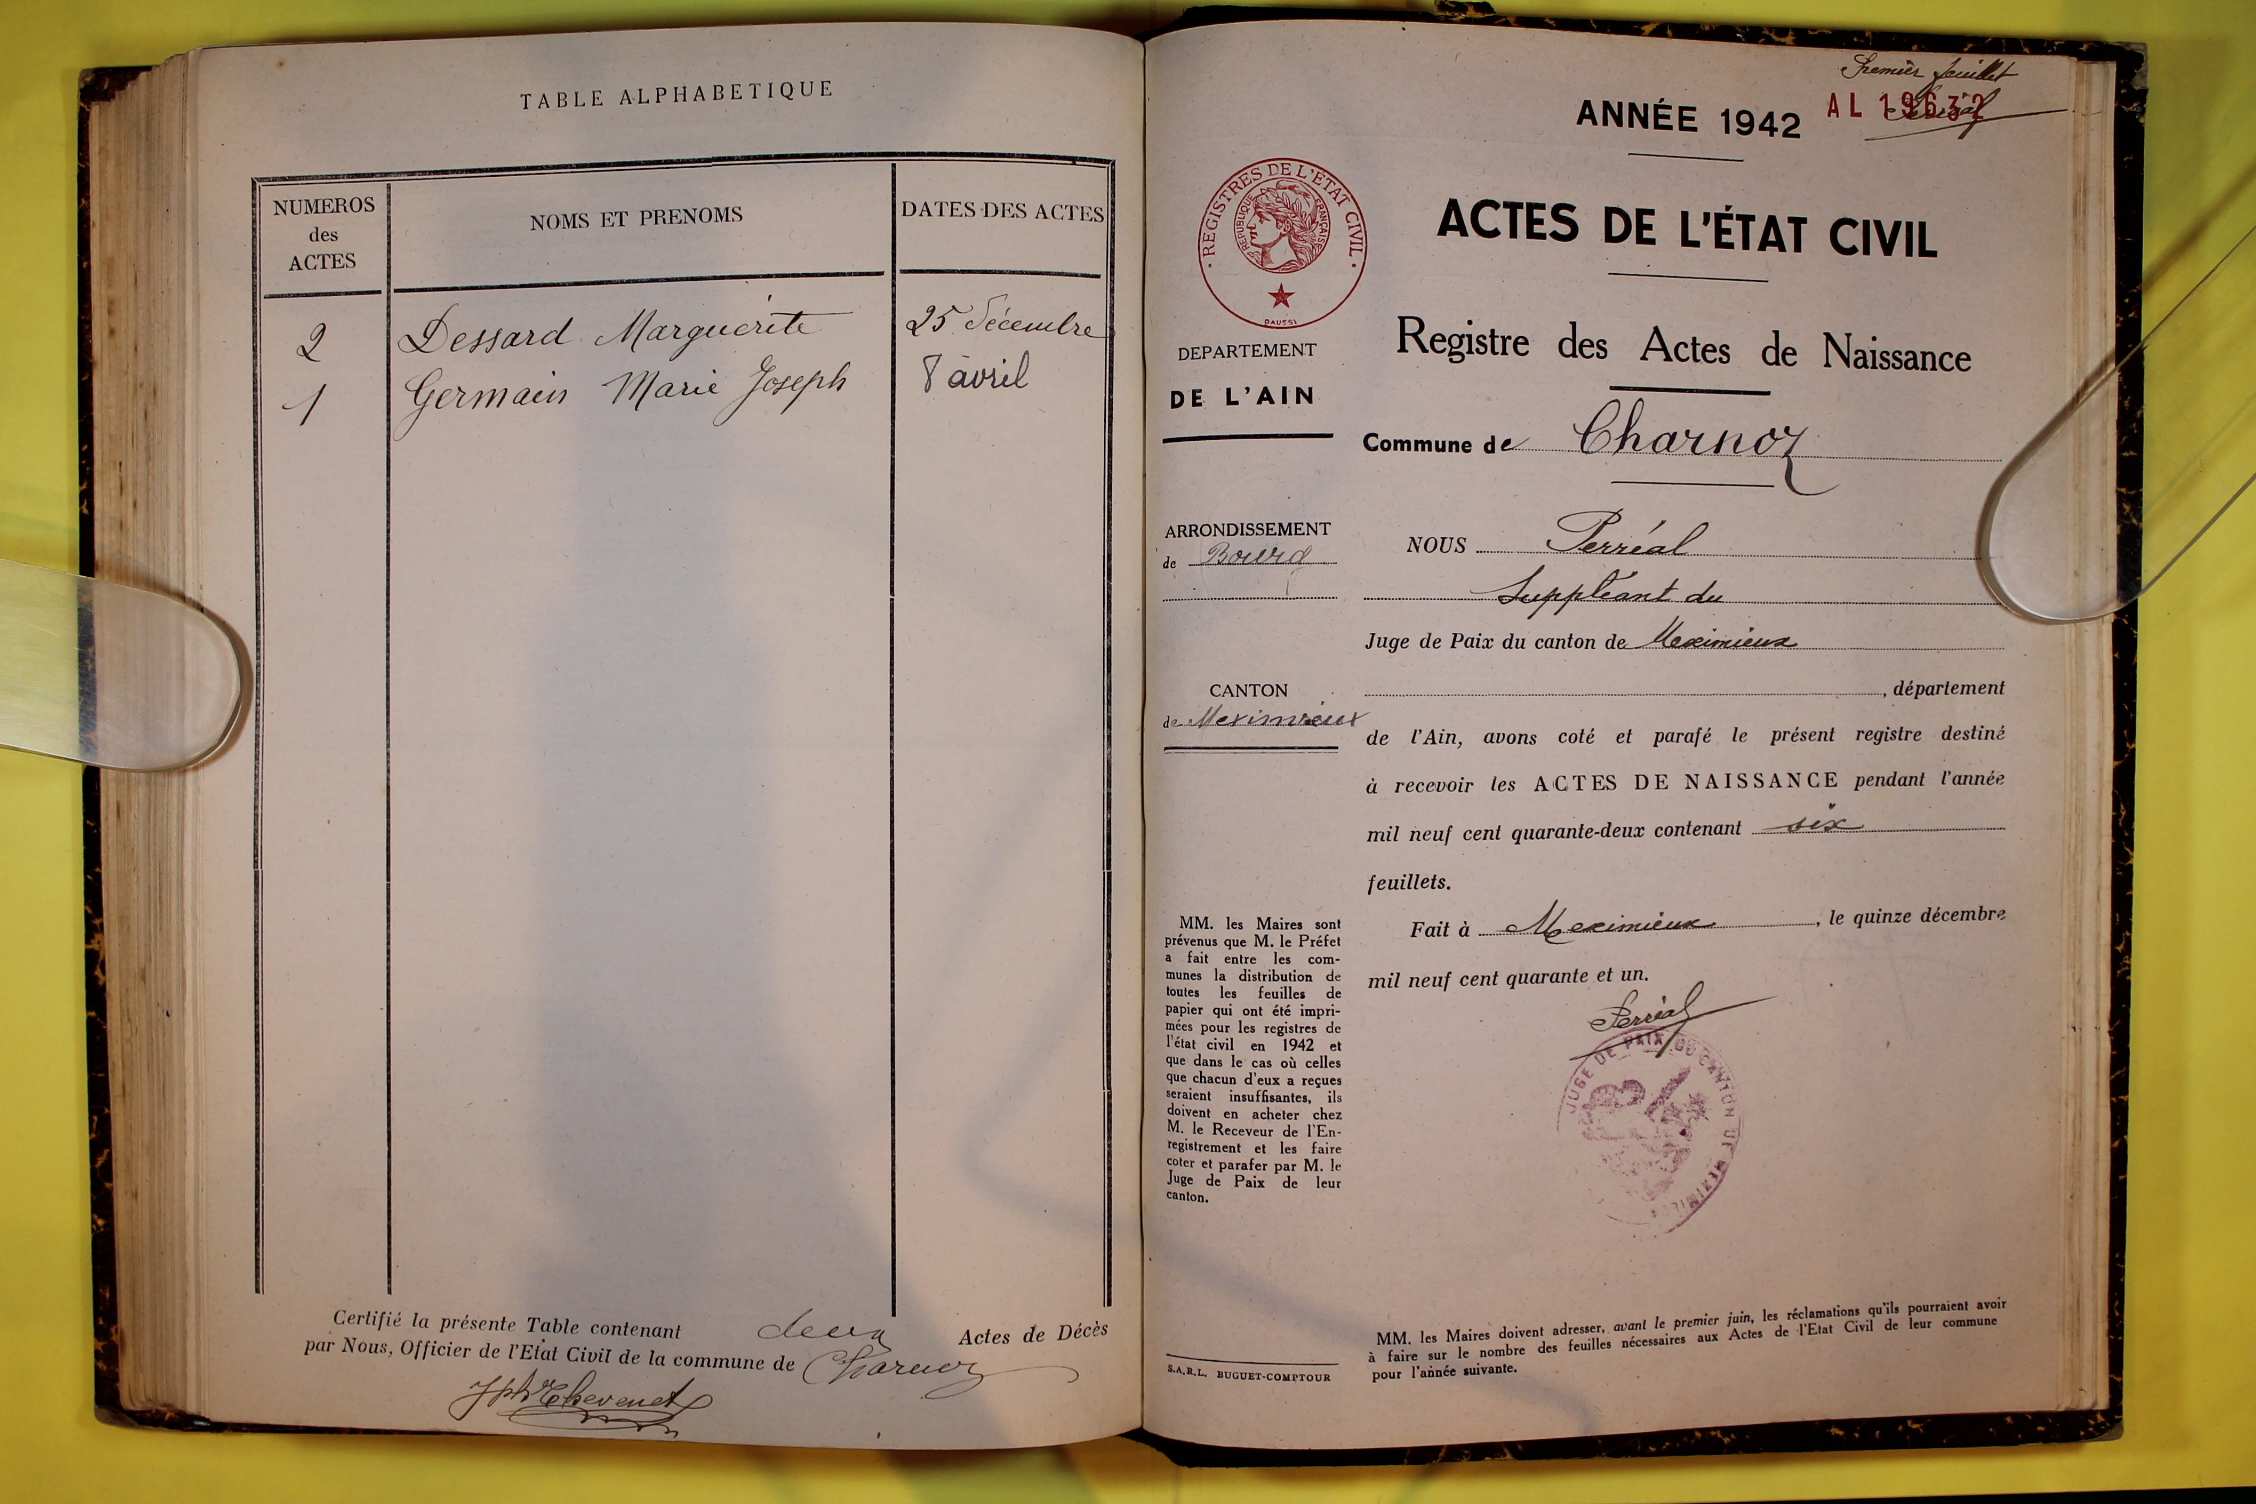 TABLE ALPHABETIQUE
NUMEROS
des
ACTES
NOMS ET PRENOMS
DATES DES ACTES
2 Dessard Marguerite 25 décembre
1 Germain Marie Joseph 8 avril
Certifié la présente Table contenant deux Actes de Décès
par Nous, Officier de l'Etat Civil de la commune de Charnoz
Jph Thevenet
Premier feuillet
Perréal
ANNÉE 1942
AL 19632
REGISTRES DE L'ETAT CIVIL
REPUBLIQUE FRANÇAISE
DAUSSI
ACTES DE L'ÉTAT CIVIL
Registre des Actes de Naissance
DEPARTEMENT
DE L'AIN
Commune de Charnoz
ARRONDISSEMENT
de Bourg
CANTON
de Meximieux
NOUS Perréal
Suppléant du
Juge de Paix du canton de Meximieux
, département
de l'Ain, avons coté et parafé le présent registre destiné
à recevoir les ACTES DE NAISSANCE pendant l'année
mil neuf cent quarante-deux contenant six
feuillets.
Fait à Meximieux, le quinze décembre
mil neuf cent quarante et un.
Perréal
JUGE DE PAIX DU CANTON DE
MM. les Maires sont
prévenus que M. le Préfet
a fait entre les com-
munes la distribution de
toutes les feuilles de
papier qui ont été impri-
mées pour les registres de
l'état civil en 1942 et
que dans le cas où celles
que chacun d'eux a reçues
seraient insuffisantes, ils
doivent en acheter chez
M. le Receveur de l'En-
registrement et les faire
coter et parafer par M. le
Juge de Paix de leur
canton.
S.A.R.L. BUGUET-COMPTOUR
MM. les Maires doivent adresser, avant le premier juin, les réclamations qu'ils pourraient avoir
à faire sur le nombre des feuilles nécessaires aux Actes de l'Etat Civil de leur commune
pour l'année suivante.